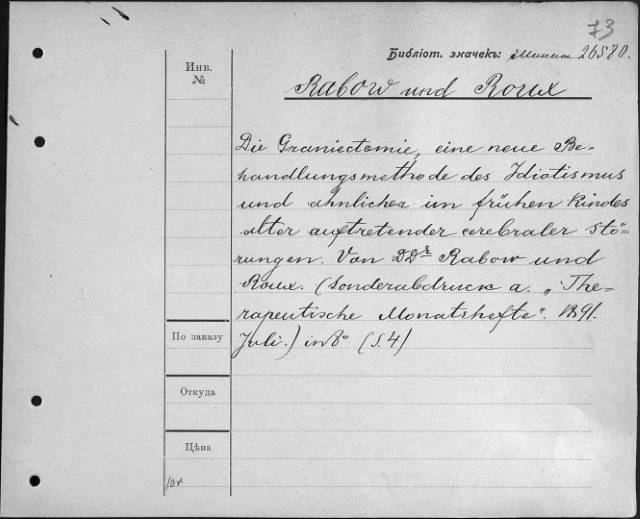 73
Библіот. значекъ: 26580.
Инв.
№
Rabow und Roux
Die Graniectomie, eine neue Be-
handlungsmethode des Idiotismus
und ähnlicher im frühen Kindes
alter auftretender cerebraler Stö-
rungen. Von DDr Rabow und
Roux. (Sonderabdruck a. „The-
rapeutische Monatshefte". 1891.
Juli.) in 8° (S. 4)
По заказу
Откуда
Цѣна